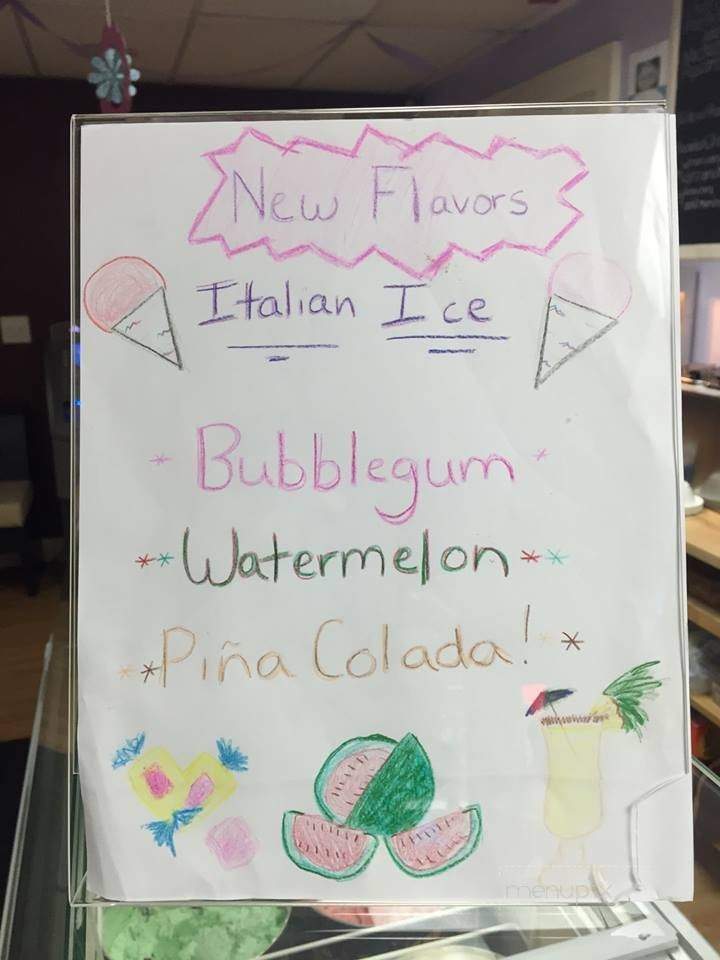 New Flavors
Italian Ice
* Bubblegum *
** Watermelon **
** Piña Colada! **
menupix